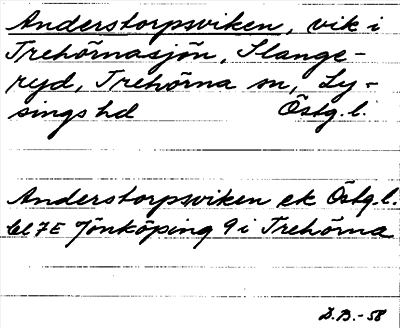 Anderstorpsviken, vik i
Trehörnasjön, Slange-
ryd, Trehörna sn, Ly-
sings hd Östg. l.
Anderstorpsviken ek Östg.l.
bl 7E Jönköping 9 i Trehörna
D.B.-58